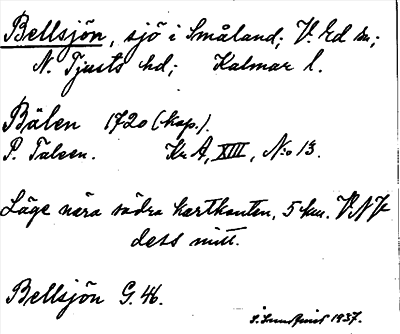 Bellsjön, sjö i Småland; V. Ed sn;
N. Tjusts hd; Kalmar l.
Bälen 1720 (kop.).
P. Taleen. Kr A, XIII, N:o 13.
Läge nära södra kartkanten, 5 km. V.N.V.
dess mitt.
Bellsjön G. 46.
1937.